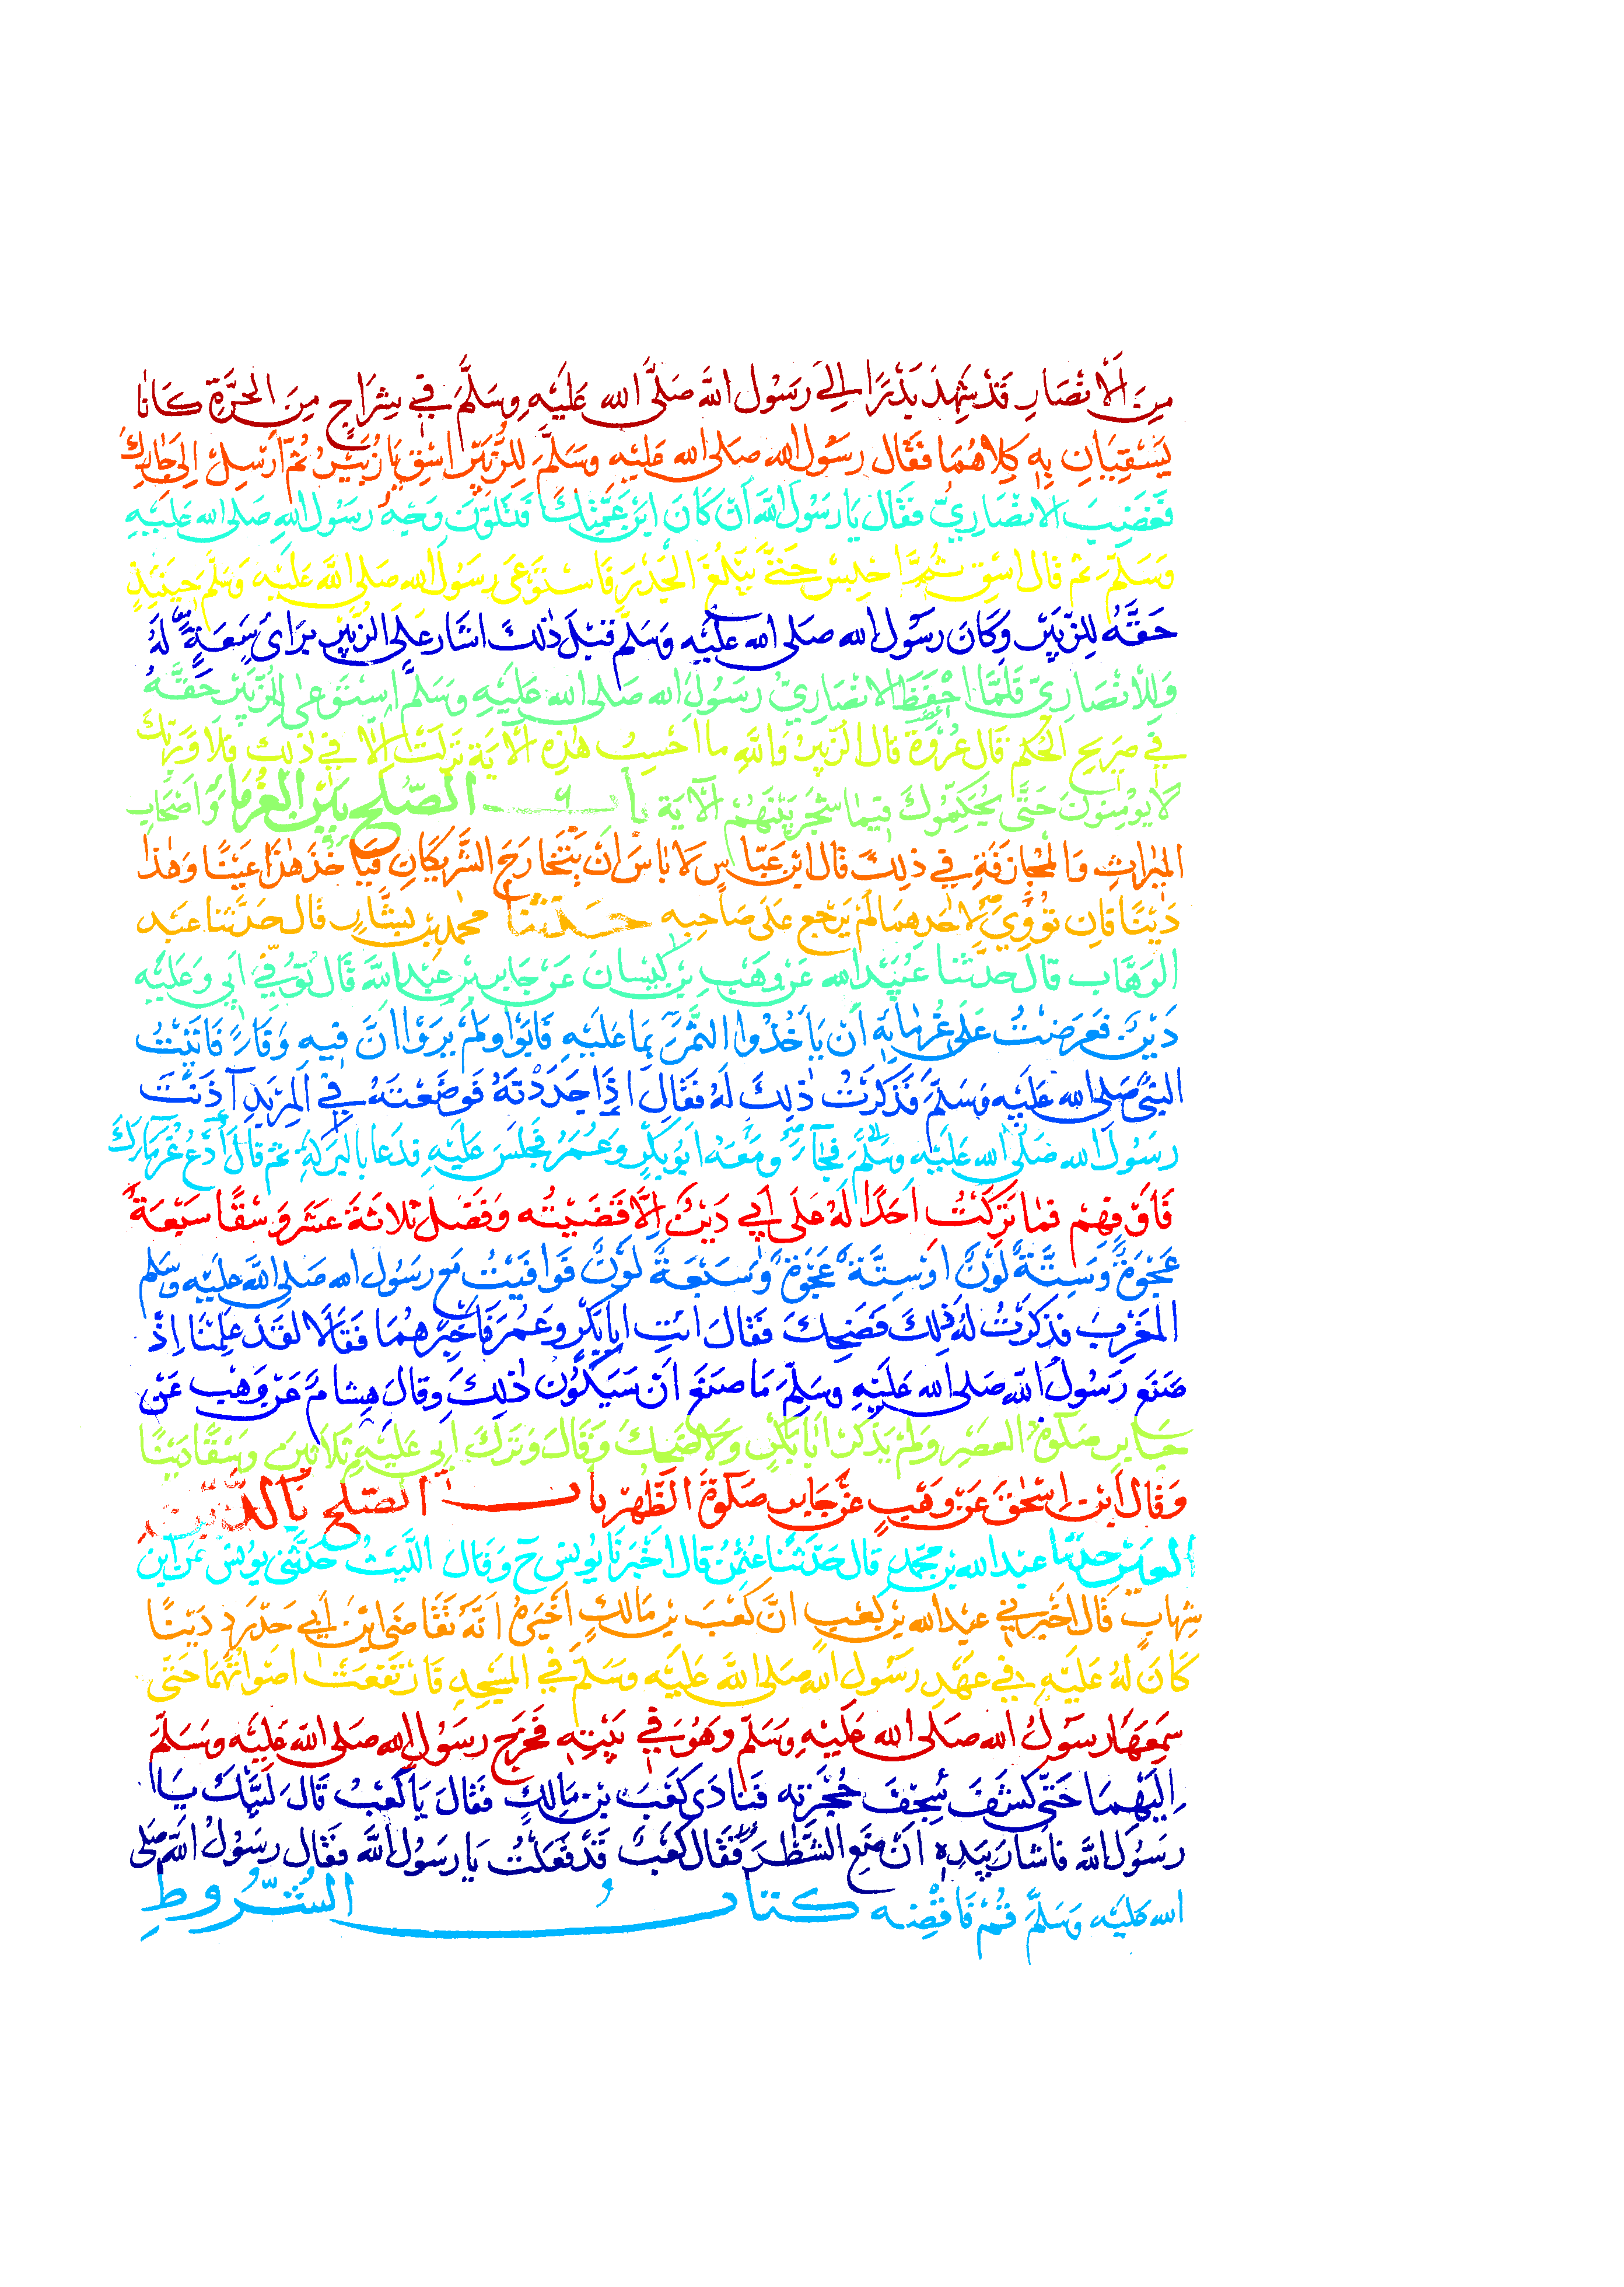 مِنَ الْاَنْصَارِ قَدْ شَهِدَ بَدْرًا اِلٰى رَسُوْلِ اللّٰهِ صَلَّى الله عَلَيْهِ وَسَلَّمَ فِيْ شِرَاجٍ مِنَ الْحَرَّةِ كَانَا
يَسْقِيَانِ بِهٖ كِلَاهُمَا فَقَال رَسُوْل الله صلى الله عليه وسَلَّمَ لِلزُّبَيْرِ اسْقِ يَا زُبَيْرُ ثُمَّ اَرْسِلْ اِلٰى جَارِكَ
فَغَضِبَ الانْصَارِيُّ فَقَال يَا رَسُوْلَ اللّٰهِ اَنْ كَانَ ابْنَ عَمَّتِكَ فَتَلَوَّنَ وَجْهُ رَسُوْل اللهِ صَلى الله عَلَيْهِ
وَسَلَّمَ ثم قال اسْقِ ثُمَّ احْبِسْ حَتّٰى يَبْلُغَ الْجَدْرَ فَاسْتَوْعٰى رسُوْلُ الله صَلى اللّٰهُ عَلَيْهِ وَسَلَّمَ حِينَئِذٍ
حَقَّهُ لِلزُّبَيْرِ وَكَانَ رسُوْل الله صلى الله عَلَيْهِ وَسَلم قَبْلَ ذٰلِكَ اشَار عَلَى الزبَيْرِ بِرَاىٍ سَعَةٍ لَهُ
وَلِلْاَنْصَارِيِّ فَلَمَّا احْفَظَ الانْصَارِيُّ رسُوْلَ الله صَلى الله عَلَيْهِ وَسَلم اسْتَوْعٰى لِلزُّبَيْرِ حَقَّهُ
فِي صَرِيحِ الْحُكْمِ قَال عُرْوَةُ قال الزُّبَيْرُ وَاللّٰهِ ما احسِبُ هٰذِهِ الْاٰيَةَ نَزَلَتْ اِلَّا فِي ذٰلِكَ فَلَا وَرَبِّكَ
لَا يُوْمِنُوْنَ حَتَّى يُحَكِّمُوْكَ فِيمَا شَجَرَ بَيْنَهُمْ الْاٰيَةَ بابُ الصُّلْحِ بَيْنَ الْغُرَمَاءِ وَاَصْحَابِ
الْمِيْرَاثِ وَالْمُجَازَفَةِ فِي ذٰلِكَ قَال ابْن عَبَّاسٍ لَا بَاسَ اَنْ يَتَخَارَجَ الشَّرِيْكَانِ فَيَاخُذَ هٰذَا عَيْنًا وَهٰذَا
دَيْنًا فَاِن تَوِيَ لِاَحَدِهِمَا لَمْ يَرْجِع عَلٰى صَاحِبِهِ حَدَّثَنَا محمد بن بشَّار قَال حَدَّثنا عَبْد
الوَهَّاب قَال حَدَّثنا عُبَيْدُ الله عَنْ وَهْبِ بْنِ كَيْسَانَ عَنْ جَابِرِ بْنِ عَبْدِ اللّٰهِ قَالَ تُوُفِّيَ اَبِي وَعَلَيْهِ
دَيْنٌ فَعَرَضْتُ عَلٰى غُرَمَائِهِ اَنْ يَاْخُذُوا التَّمْرَ بِمَا عَلَيْهِ فَاَبَوْا وَلَمْ يَرَوْا اَنَّ فِيهِ وَفَاءً فَاَتَيْتُ
النبيَّ صَلى الله عَلَيْهِ وَسَلَّمَ فَذَكَرْتُ ذٰلِكَ لَهُ فَقَالَ اِذَا جَدَدْتَهُ فَوَضَعْتَهُ فِي الْمِرْبَدِ اٰذَنْتَ
رسُوْلَ الله صَلى الله عَلَيْهِ وسَلَّمَ فَجَاءَ وَمَعَهُ اَبُوْ بَكْرٍ وَعُمَرُ فَجَلَسَ عَلَيْهِ فَدَعَا بِالْبَرَكَةِ ثم قَالَ ادْعُ غُرَمَاءَكَ
فَاَوْفِهِمْ فَمَا تَرَكْتُ اَحَدًا لَهُ عَلَى اَبِي دَيْنٌ اِلَّا قَضَيْتُه وَفَضَلَ ثَلَاثَةَ عَشَرَ وَسْقًا سَبْعَةٌ
عَجْوَةٌ وَسِتَّةٌ لَوْنٌ اَوْ سِتَّةٌ عَجْوَةٌ وَسَبْعَةٌ لَوْنٌ فَوَافَيْتُ مَعَ رسُول الله صَلى اللّٰهُ عَلَيْهِ وَسَلم
الْمَغْرِبَ فَذَكَرْتُ لَهُ ذٰلِكَ فَضَحِكَ فَقَالَ ائْتِ ابَا بَكْرٍ وَعُمَرَ فَاَخْبِرْهُمَا فَقَالَا لَقَدْ عَلِمْنَا اِذْ
صَنَعَ رَسُوْلُ اللّٰهِ صَلى الله عَلَيْهِ وَسَلَّمَ مَا صَنَعَ اَنْ سَيَكُوْن ذٰلِكَ وَقَالَ هِشَامٌ عَنْ وَهْبٍ عَنْ
جَابِرٍ صَلٰوةَ العصْرِ وَلَمْ يَذْكُرْ اَبَا بَكْرٍ وَلَا ضَحِكَ وَقَالَ وَتَرَكَ اَبِي عَلَيْهِ ثَلَاثِينَ وَسْقًا دَيْنًا
وَقَالَ ابْن اِسْحٰقَ عَنْ وَهْبٍ عَنْ جَابِرٍ صَلٰوةَ الظُّهْرِ باب الصُّلْحِ بِالدَّيْنِ
والعين حدثنا عبد الله بن مُحَمَّدٍ قَالَ حَدّثَنَا عُثْمٰنُ قَال اَخْبَرَنَا يُوْنس ح وَقَالَ اللَّيْثُ حَدَّثَنِي يُوْنُسُ عَنِ ابْنِ
شِهَابٍ قَال اَخْبَرَنِي عَبْد الله بْن كَعْبٍ اَنَّ كَعْبَ بْنَ مَالِكٍ اَخْبَرَهُ اَنَّهُ تَقَاضَى ابْنَ اَبِي حَدْرَدٍ دَيْنًا
كَانَ لَهُ عَلَيْهِ فِي عَهْدِ رسُوْلِ اللّٰهِ صَلى اللّٰهُ عَلَيْهِ وَسَلَّمَ فِي الْمَسْجِدِ فَارْتَفَعَتْ اصْوَاتُهُمَا حَتّٰى
سَمِعَهَا رسُوْلُ الله صَلى الله عَلَيْهِ وَسَلَّمَ وَهُوَ فِي بَيْتِهٖ فَخَرَجَ رسُوْلُ اللهِ صَلى اللّٰه عَلَيْهِ وَسَلَّمَ
اِلَيْهِمَا حَتّٰى كَشَفَ سِجْفَ حُجْرَتِهِ فَنَادٰى كَعْبَ بْن مَالِكٍ فَقَالَ يَا كَعْبُ قَالَ لَبَّيْكَ يَا
رسُوْلَ اللّٰهِ فَاَشَارَ بِيَدِهٖ اَنْ ضَعِ الشَّطْرَ فَقَال كَعْبٌ قَدْ فَعَلْتُ يَا رسُوْلَ اللّٰهِ فَقَال رسُوْلُ اللّٰهِ صَلى
الله عَلَيْهِ وَسَلَّمَ قُمْ فَاقْضِهِ كتابُ الشُّرُوطِ